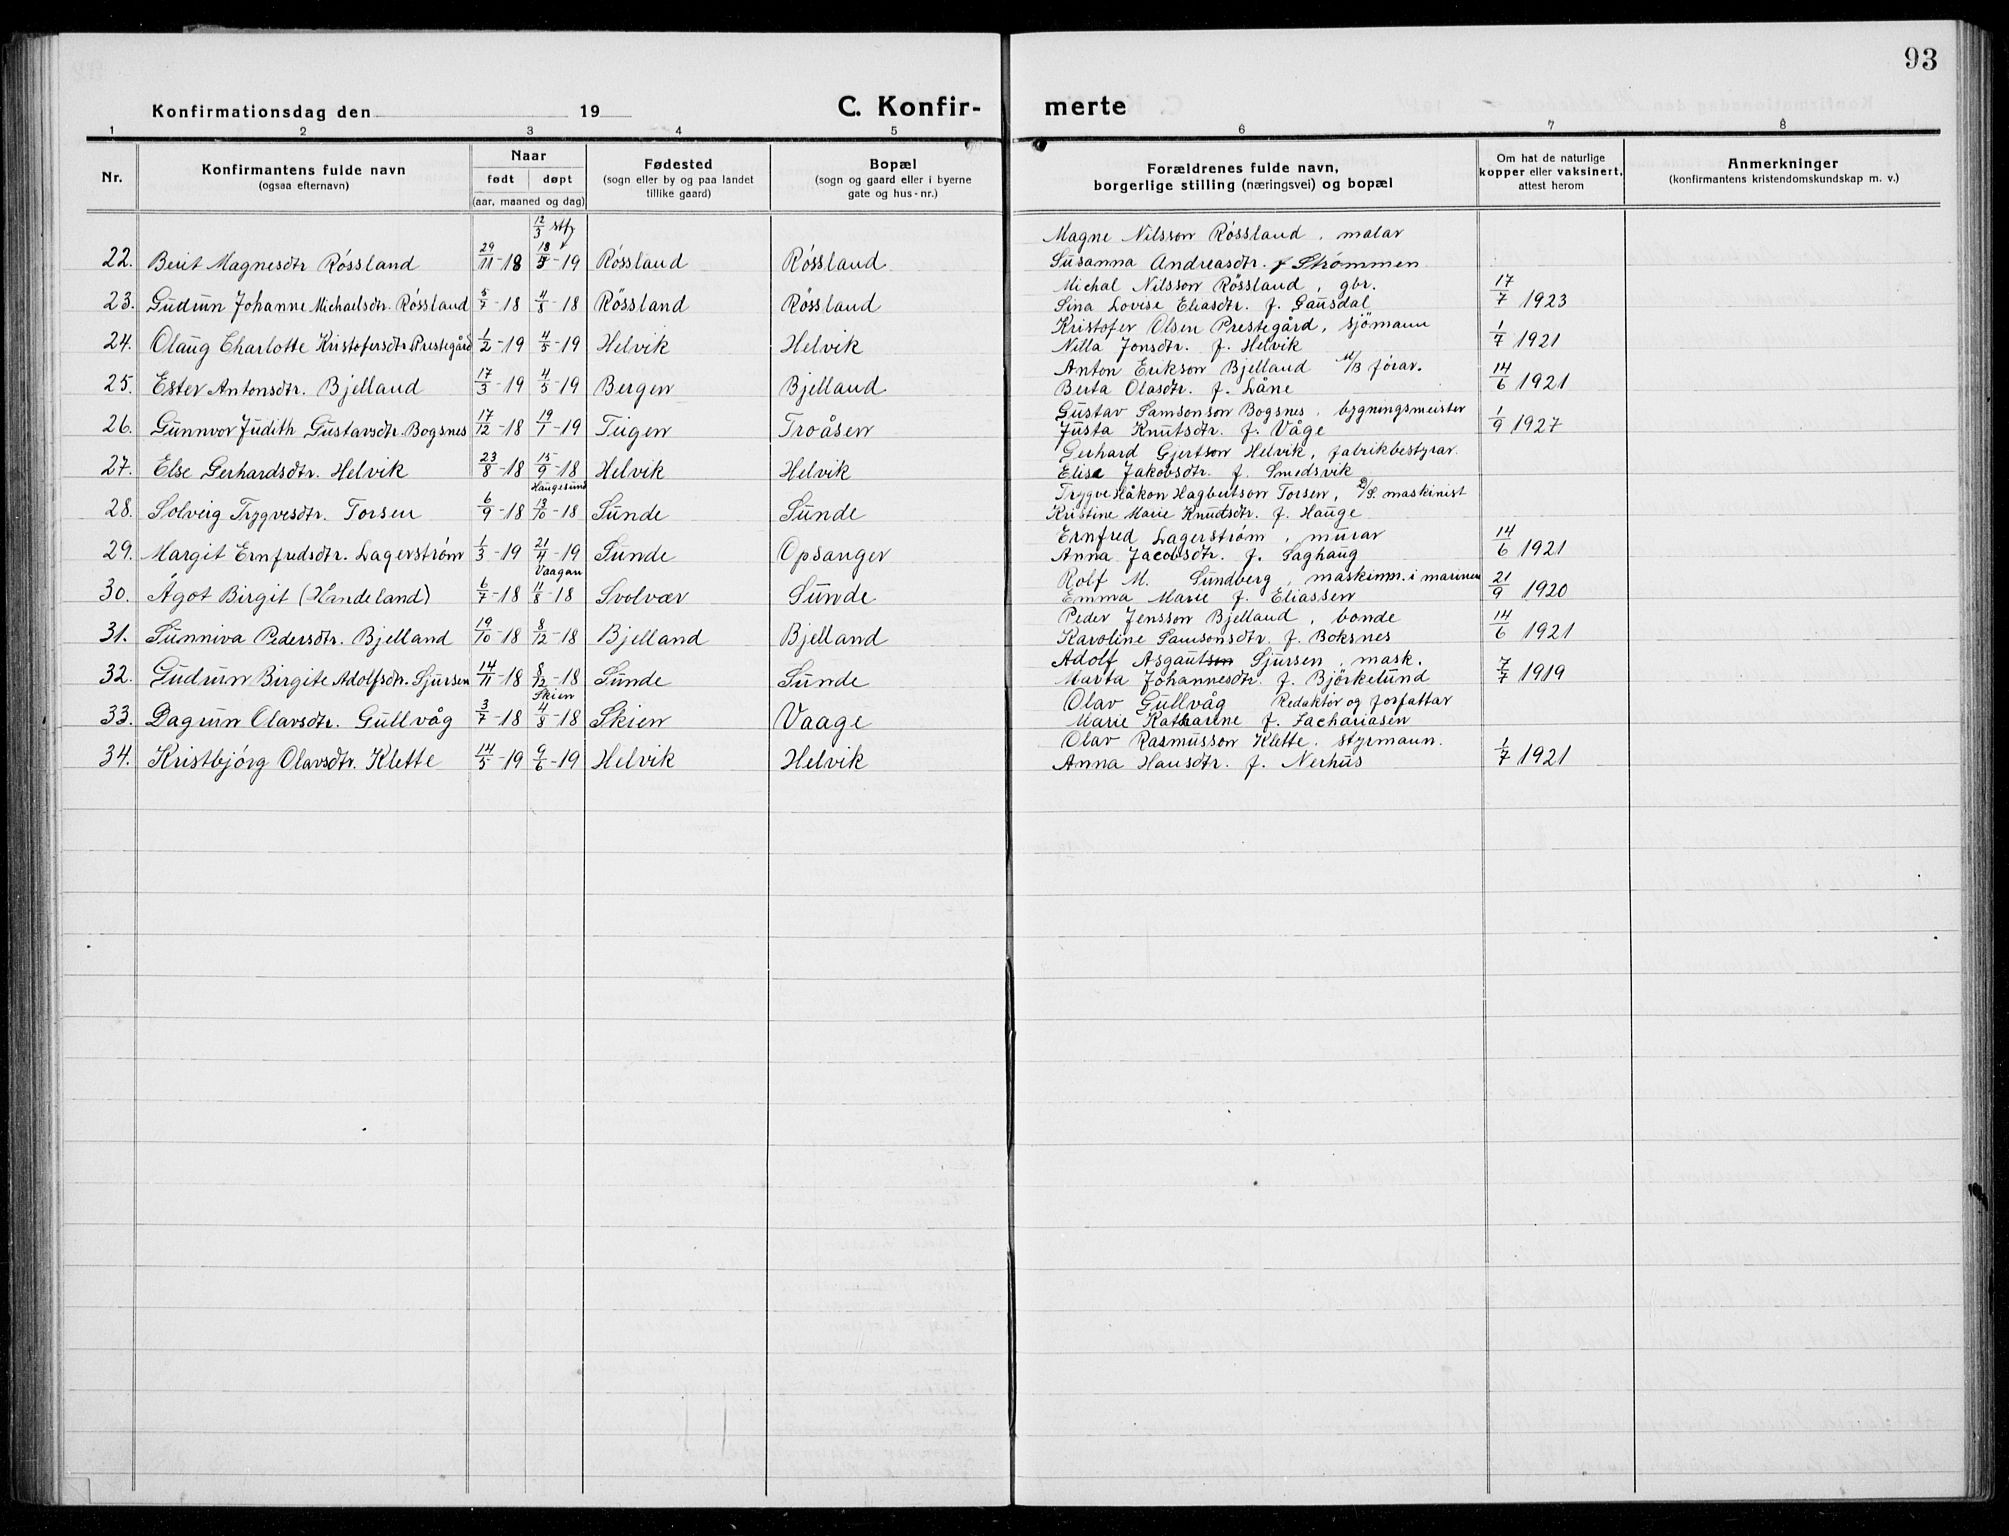 93
Konfirmationsdag den 19
C. Konfir-
merte
1 2 3 4 5 6 7 8
Nr.
Konfirmantens fulde navn
(ogsaa efternavn)
Naar
født døpt
(aar, maaned og dag)
Fødested
(sogn eller by og paa landet
tillike gaard)
Bopæl
(sogn og gaard eller i byerne
gate og hus-nr.)
Forældrenes fulde navn,
borgerlige stilling (næringsvei) og bopæl
Om hat de naturlige
kopper eller vaksinert,
attest herom
Anmerkninger
(konfirmantens kristendomskundskap m. v.)
12/3 stfg
Magne Nilsson Røssland, malar
22. Berit Magnesdtr Røssland 29/11-18 18/5-19 Røssland Røssland Susanna Andreasdtr. f Strømmen
Michal Nilsson Røssland, gbr.
23. Gudrun Johanne Michaelsdtr. Røssland 5/7-18 4/8-18 Røssland Røssland Sina Lovise Eliasdtr. f. Gausdal 17/7 1923
Kristofer Olsen Prestegård, sjömann
24. Olaug Charlotte Kristofersdtr. Prestegård 1/2-19 4/5-19 Helvik Helvik Nilla Jonsdtr. f. Helvik 1/7 1921
Anton Erikson Bjelland M/B förar.
25. Ester Antonsdtr. Bjelland 17/3-19 4/5-19 Bergen Bjelland Berta Olasdtr. f. Låne 14/6 1921
Gustav Samsonson Bogsnes, bygningsmeister
26. Gunnvor Judith Gustavsdtr. Bogsnes 17/12-18 19/1-19 Teigen Troåsen Justa Knutsdtr. f. Våge 1/9 1927
Gerhard Gjertson Helvik, fabrikbestyrar
27. Else Gerhardsdtr. Helvik 23/8-18 15/9-18 Helvik Helvik Elise Jakobsdtr. f. Smedsvik
Haugesund
Trygve Håkon Hagbertson Torsen, D/S. maskinist
28. Solveig Trygvesdtr. Torsen 6/9-18 13/10-18 Sunde Sunde Kristine Marie Knudsdtr. f. Hauge
Ernfred Lagerstrøm, murar
29. Margit Ernfredsdtr. Lagerstrøm 1/3-19 21/4-19 Sunde Opsanger Anna Jacobsdtr. f. Saghaug 14/6 1921
Vaagan
Rolf M. Sundberg, maskinm. i marinen
30. Ågot Birgit (Handeland) 6/7-18 11/8-18 Svolvær Sunde Emma Marie f. Eliassen 21/9 1920
Peder Jensson Bjelland, bonde
31. Sunniva Pedersdtr. Bjelland 19/10-18 8/12-18 Bjelland Bjelland Karoline Samsonsdtr. f. Boksnes 14/6 1921
Adolf Asgautson Sjursen, mask.
32. Gudrun Birgite Adolfsdtr. Sjursen 14/11-18 8/12-18 Sunde Sunde Marta Johannesdtr. f. Björkelund 7/7 1919
Skien
Olav Gullvåg Redaktör og forfattar
33. Dagrun Olavsdtr. Gullvåg 3/7-18 4/8-18 Skien Vaage Marie Katharine f. Zachariasen
Olav Rasmusson Klette. styrmann.
34. Kristbjørg Olavsdtr. Klette 14/5-19 9/6-19 Helvik Helvik Anna Hansdtr. f. Nerhus 1/7 1921